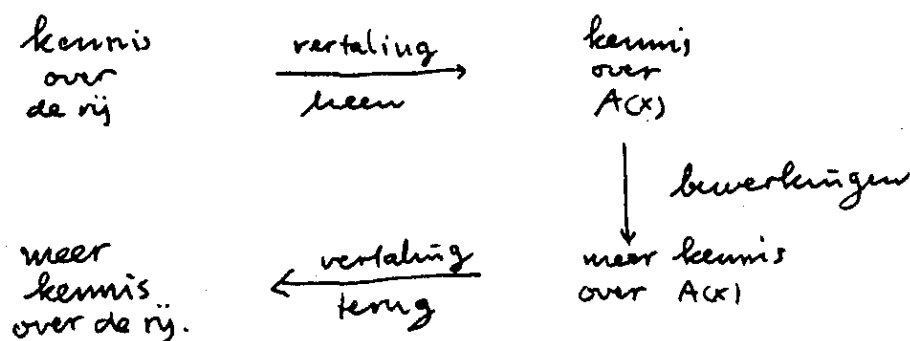 kennis
over
de rij
vertaling
heen
kennis
over
A(x)
bewerkingen
meer
kennis
over de rij.
vertaling
terug
meer kennis
over A(x)